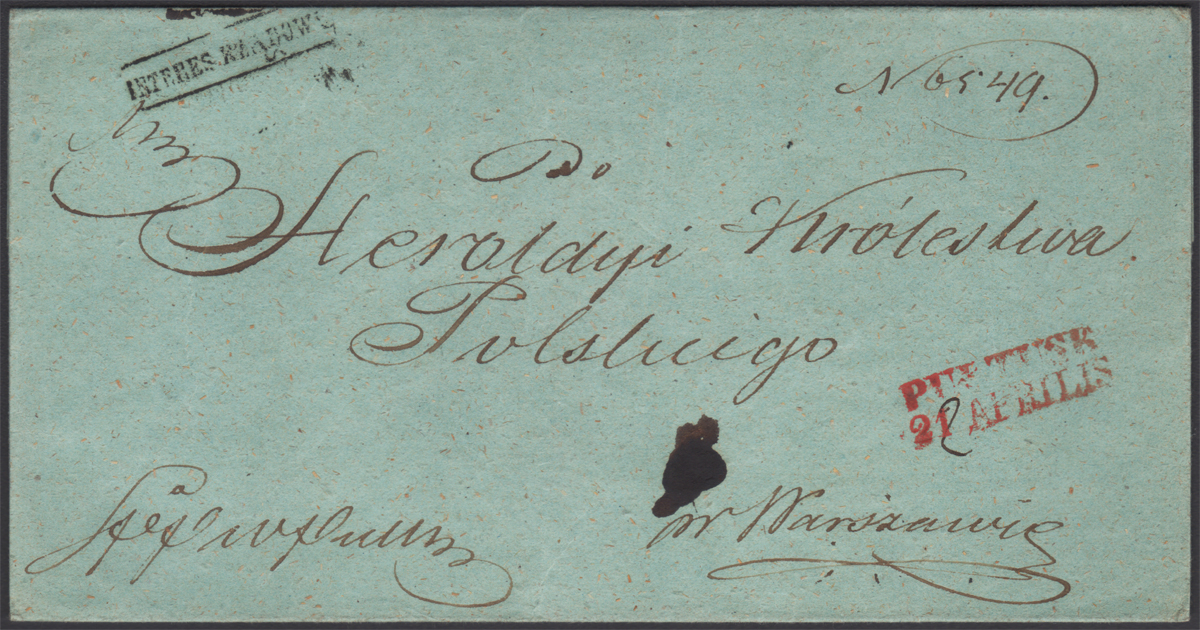 INTERES WŁADOW
N 6549.
Do
Heroldyi Królestwa
Polskiego
PUŁTUSK
21 APRILIS
w Warszawie